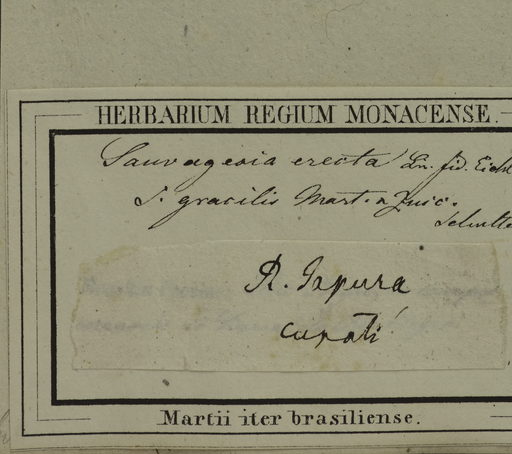 HERBARIUM REGIUM MONACENSE.
Sauvagesia erecta Lin. fid. Eichl
S. gracilis Mart. a Zucc.
Schulte
R. Japura
Cupati
Martii iter brasiliense.